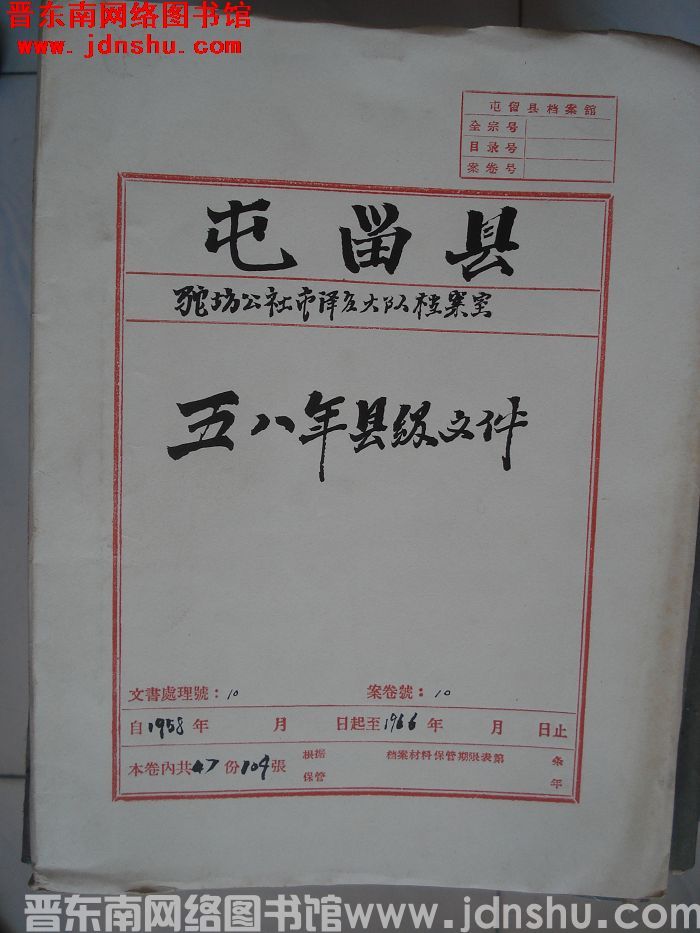 晋东南网络图书馆
www.jdnshu.com
屯留县档案館
全宗号
目录号
案卷号
屯畄县
驼坊公社市泽庄大队档案室
五八年县级文件
文書處理號：10 案卷號：10
自1958年 月 日起至1966年 月 日止
本卷內共47份104張 根据 保管 档案材料保管期限表第 条 年
晋东南网络图书馆www.jdnshu.com